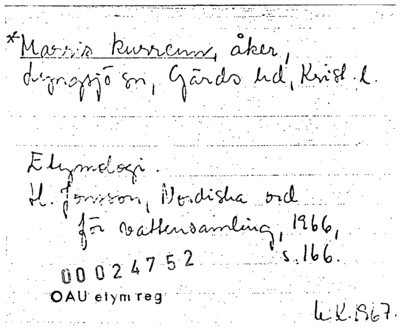 *Marris kurrum, åker,
Lyngsjö sn, Gärds hd, Krist. l.
Etymologi.
H. Jonsson, Nordiska ord
för vattensamling, 1966,
s. 166.
00024752
OAU etym reg
1967.